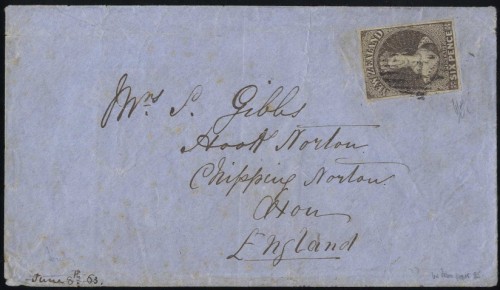 NEW ZEALAND
SIX PENCE
Mrs S. Gibbs
Hook Norton
Chipping Norton
Oxon
England